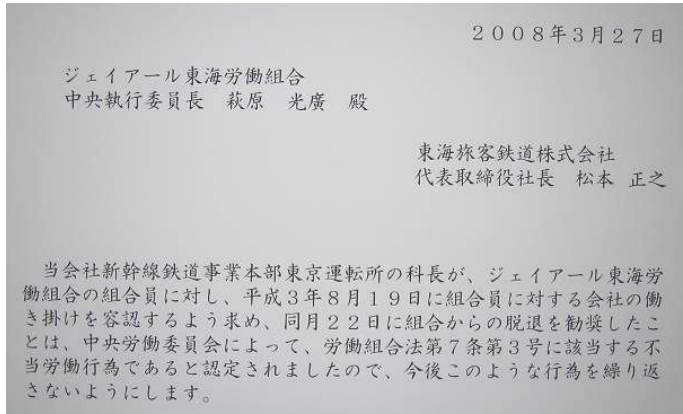 ２００８年３月２７日
ジェイアール東海労働組合
中央執行委員長　萩原　光廣　殿
東海旅客鉄道株式会社
代表取締役社長　松本　正之
当会社新幹線鉄道事業本部東京運転所の科長が、ジェイアール東海労
働組合の組合員に対し、平成３年８月１９日に組合員に対する会社の働
き掛けを容認するよう求め、同月２２日に組合からの脱退を勧奨したこ
とは、中央労働委員会によって、労働組合法第７条第３号に該当する不
当労働行為であると認定されましたので、今後このような行為を繰り返
さないようにします。